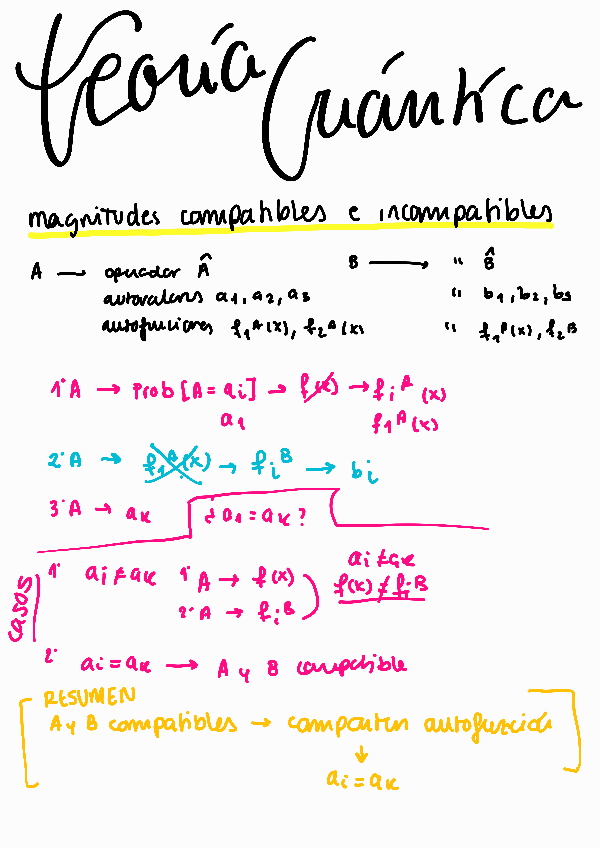 Teoría Cuántica
magnitudes compatibles e incompatibles
A → operador Â B → " B̂
autovalores a₁, a₂, a₃ " b₁, b₂, b₃
autofunciones f₁ᴬ(x), f₂ᴬ(x) " f₁ᴮ(x), f₂ᴮ
1º A → Prob [A = aᵢ] → f(x) → fᵢᴬ (x)
a₁ f₁ᴬ(x)
2º A → f₁ᴬ(x) → fᵢᴮ → bᵢ
3º A → aₖ ¿a₁ = aₖ?
casos
1º aᵢ ≠ aₖ 1º A → f(x) aᵢ ≠ aₖ
2º A → fᵢᴮ f(x) ≠ fᵢᴮ
2º aᵢ = aₖ → A y B compatible
RESUMEN
A y B compatibles → comparten autofunción
↓
aᵢ = aₖ